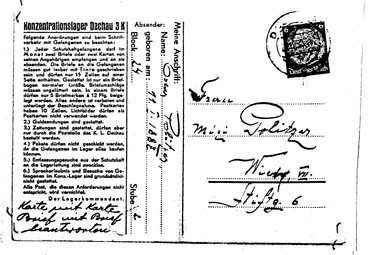 Konzentrationslager Dachau 3 K
Folgende Anordnungen sind beim Schriftverkehr mit Gefangenen zu beachten:
1.) Jeder Schutzhaftgefangene darf im
Monat zwei Briefe oder zwei Karten von
seinen Angehörigen empfangen und an sie
absenden. Die Briefe an die Gefangenen
müssen gut lesbar mit Tinte geschrieben
sein und dürfen nur 15 Zeilen auf einer
Seite enthalten. Gestattet ist nur ein Briefbogen
normaler Größe. Briefumschläge
müssen ungefüttert sein. In einem Briefe
dürfen nur 5 Briefmarken à 12 Pfg. beigelegt
werden. Alles andere ist verboten und
unterliegt der Beschlagnahme. Postkarten
haben 10 Zeilen. Lichtbilder dürfen als
Postkarten nicht verwendet werden.
2.) Geldsendungen sind gestattet.
3.) Zeitungen sind gestattet, dürfen aber
nur durch die Poststelle des K. L. Dachau
bestellt werden.
4.) Pakete dürfen nicht geschickt werden,
da die Gefangenen im Lager alles kaufen
können.
5.) Entlassungsgesuche aus der Schutzhaft
an die Lagerleitung sind zwecklos.
6.) Sprecherlaubnis und Besuche von Gefangenen
im Konz.-Lager sind grundsätzlich
nicht gestattet.
Alle Post, die diesen Anforderungen nicht
entspricht, wird vernichtet.
Der Lagerkommandant.
Karte mit Karte
Brief mit Brief
beantworten
Absender:
Meine Anschrift:
Name:
geboren am: 11.
Block 24 Stube 2
Frau
Politzer
Wien
6